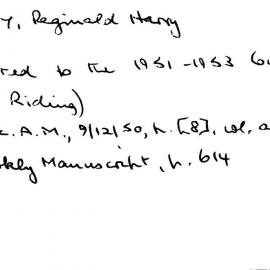 Y, Reginald Harry
red to the 1951-1953
Riding)
A.M., 9/12/50, h. [8],
Manuscript, h. 614